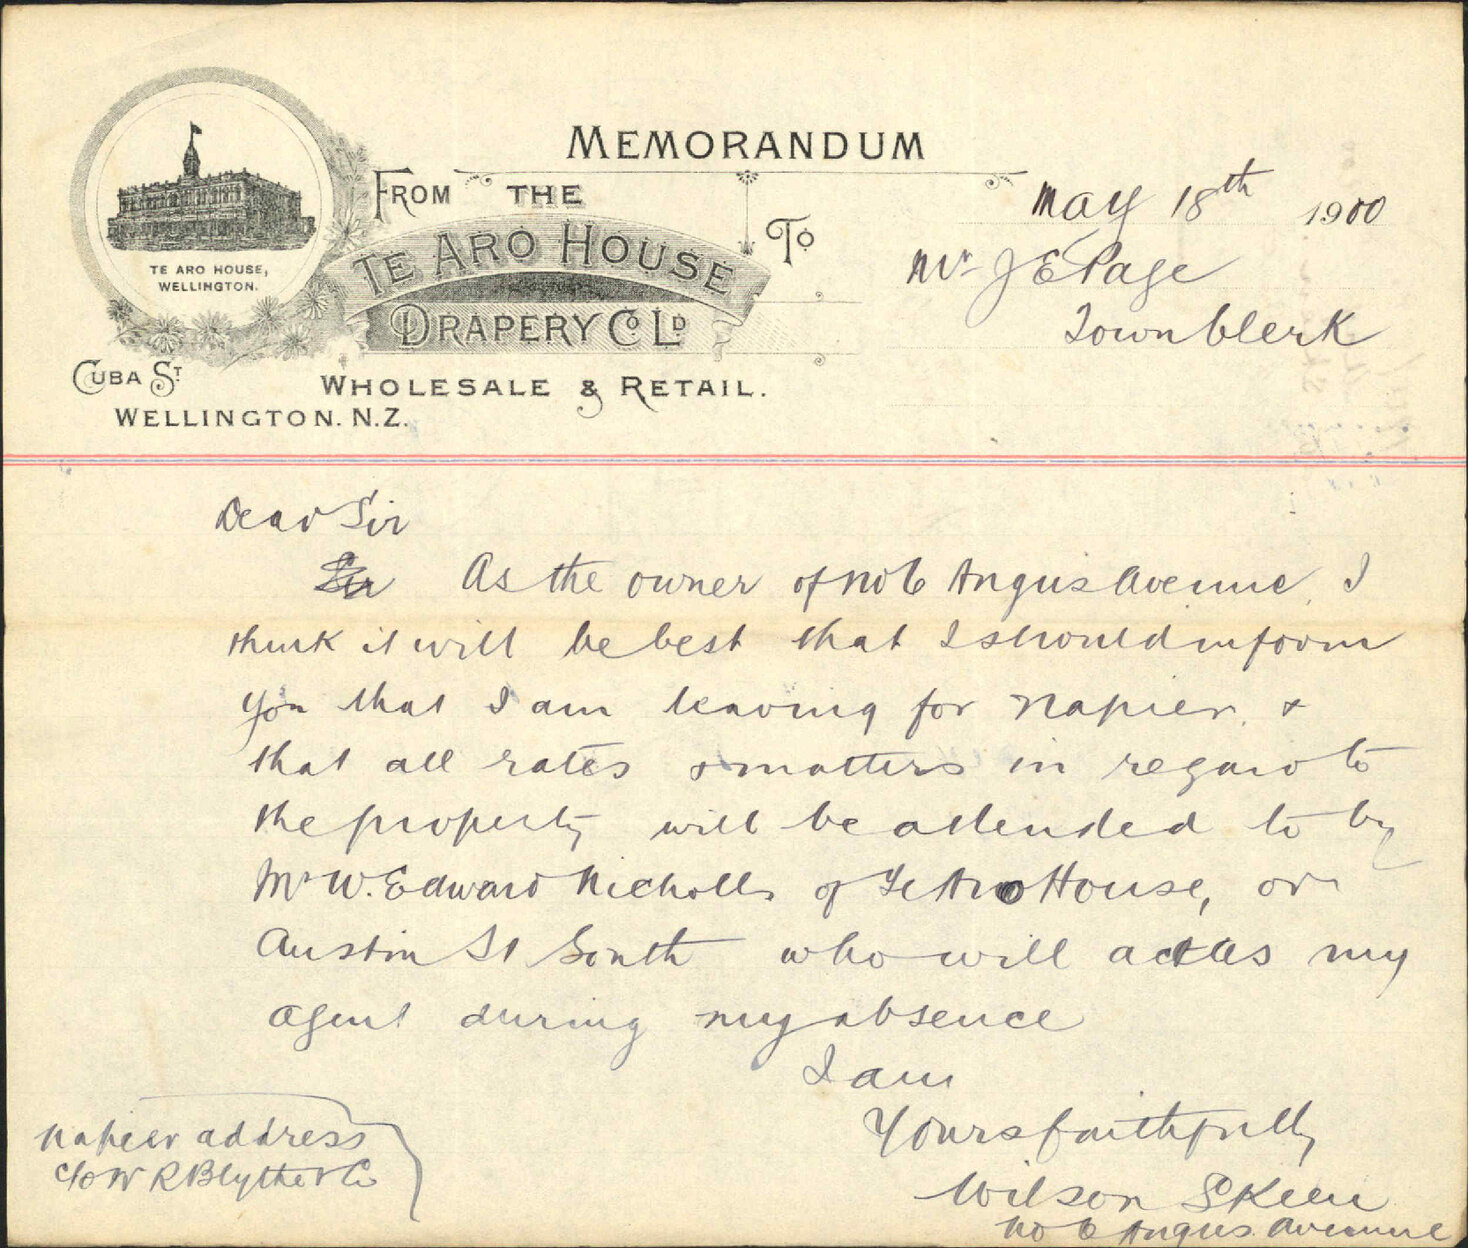 MEMORANDUM
FROM THE
TE ARO HOUSE
DRAPERY Co LD
WHOLESALE & RETAIL.
TE ARO HOUSE,
WELLINGTON.
CUBA ST
WELLINGTON. N.Z.
To
May 18th 1900
Mr J E Page
Town Clerk
Dear Sir
As the owner of No 6 Angus Avenue, I
think it will be best that I should inform
you that I am leaving for Napier. &
that all rates & matters in regard to
the property will be attended to by
Mr W. Edward Nicholls of Te Aro House, or
Austin St South who will act as my
agent during my absence
I am
Yours faithfully
Wilson Skeen
No 6 Angus Avenue
Napier address
c/o W R Blythe & Co